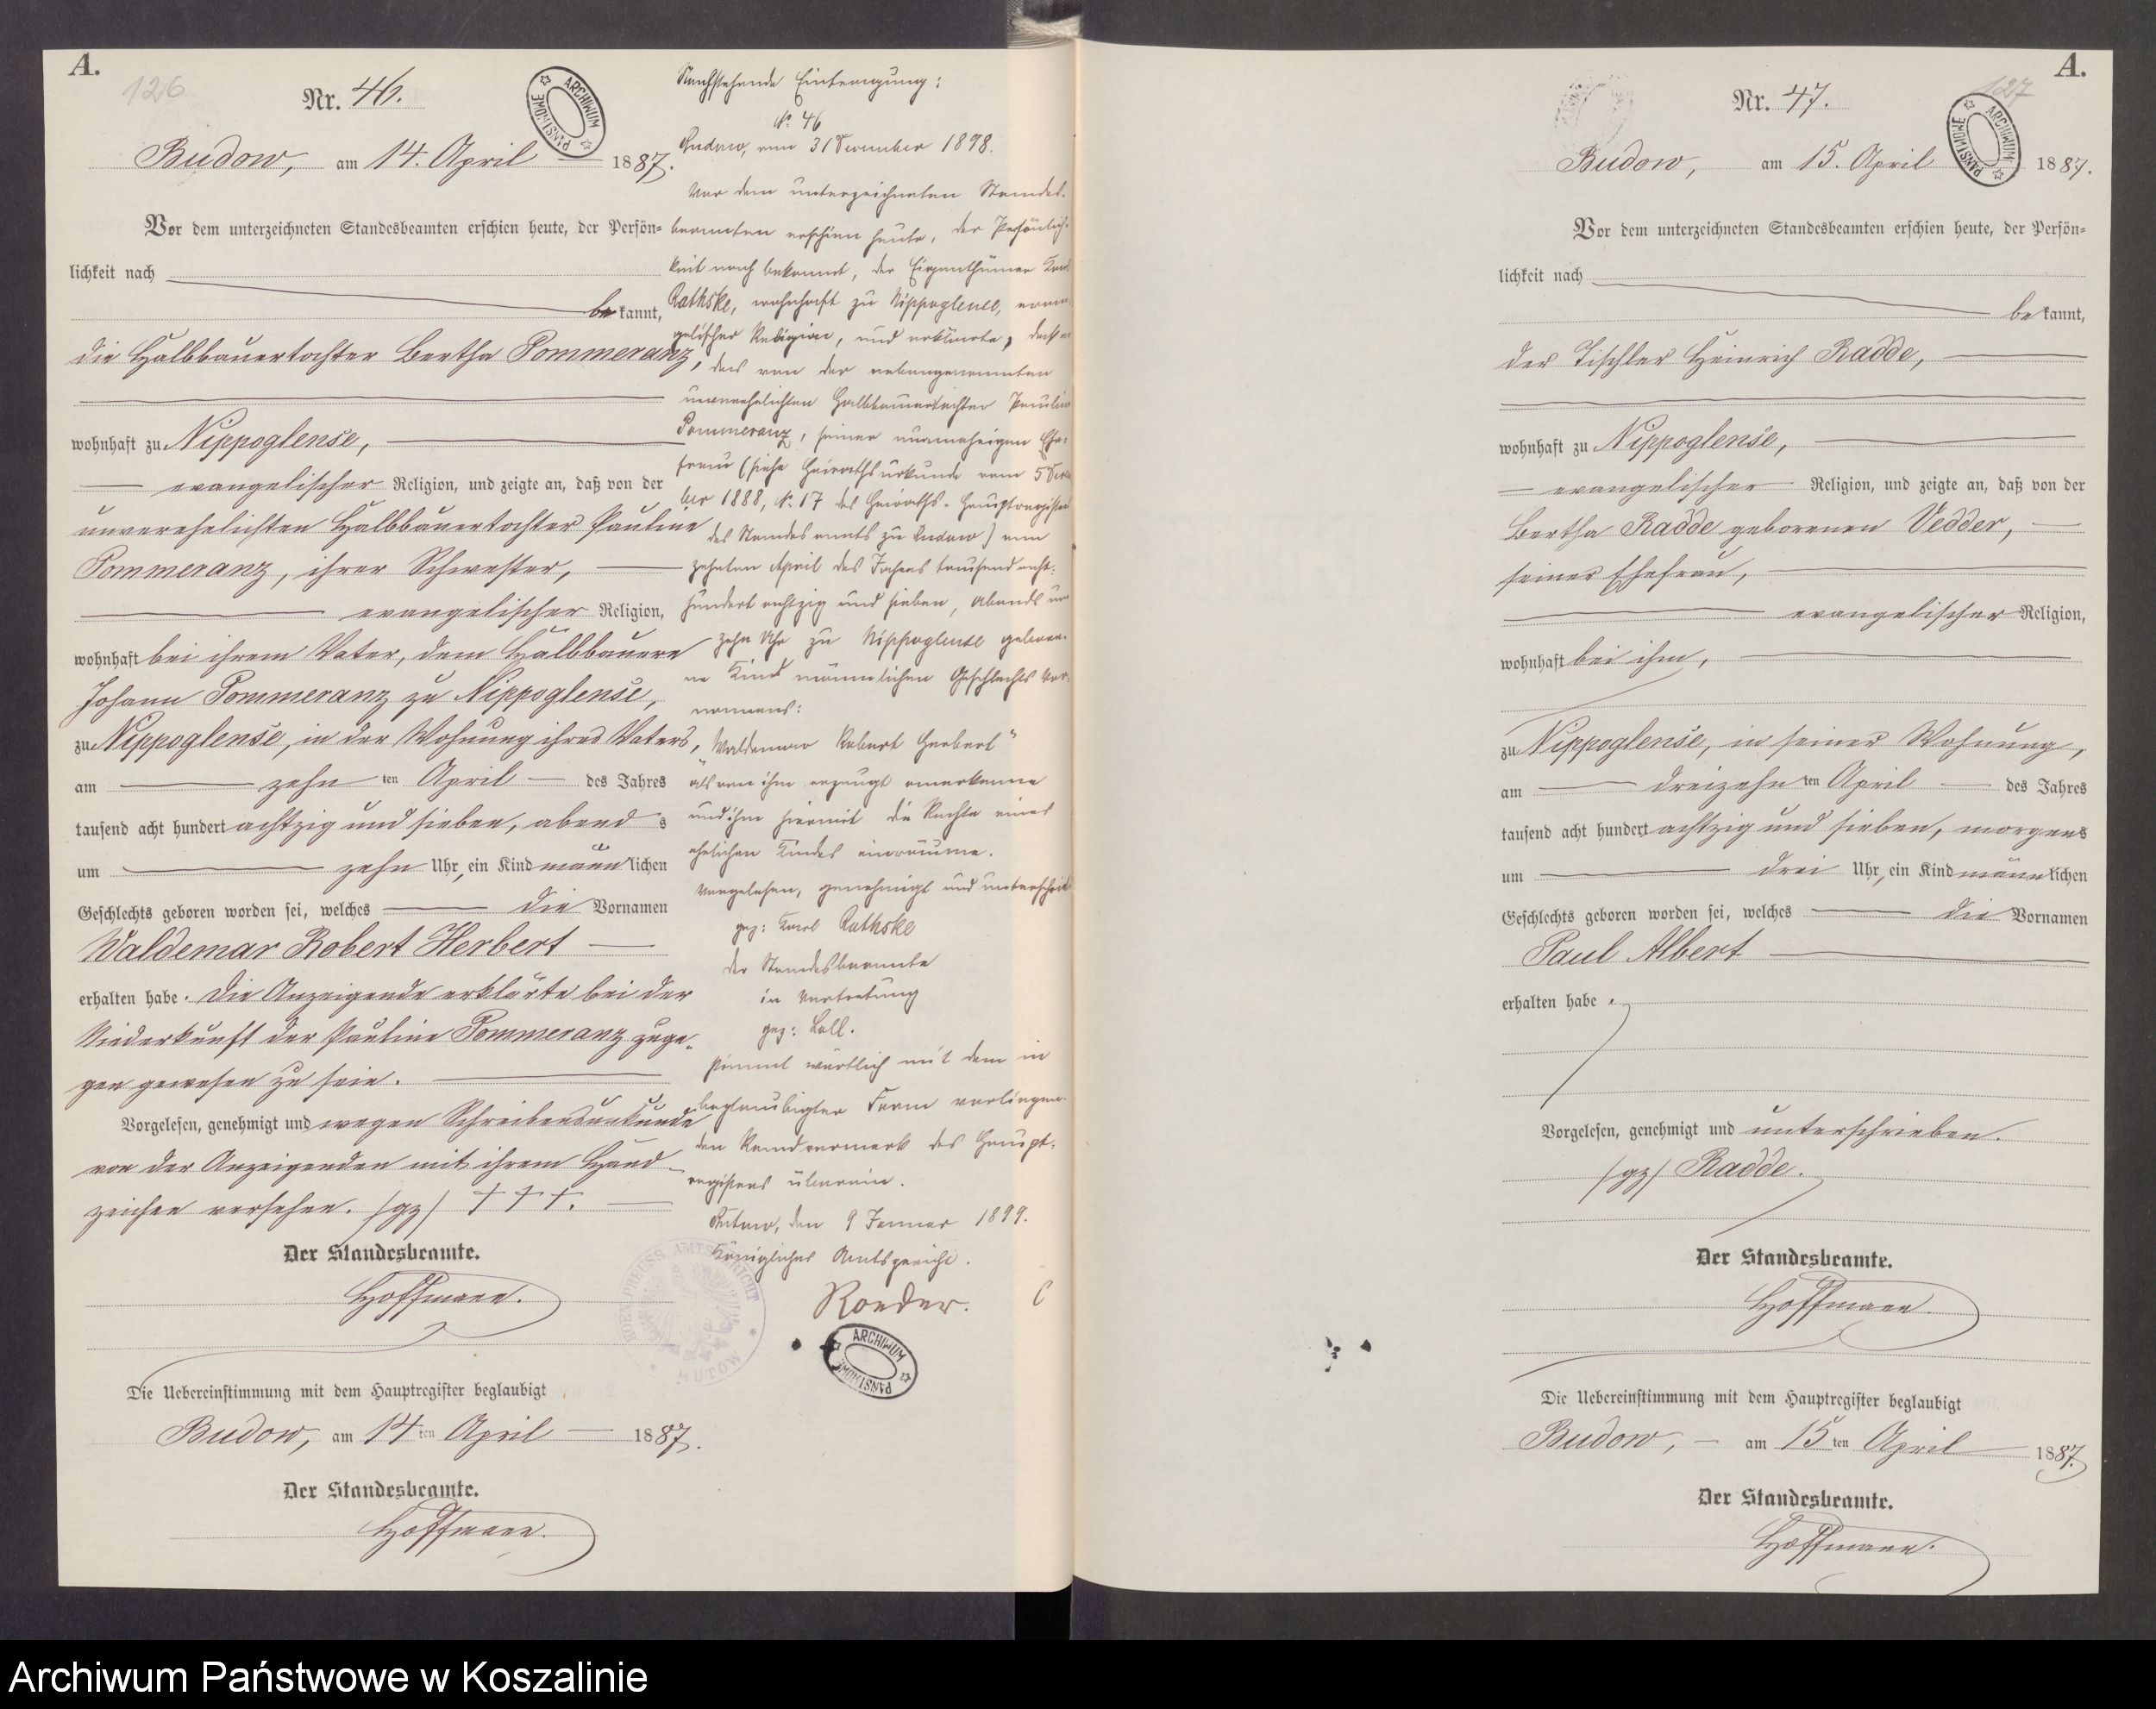 A.
126
Nr. 46.
Budow, am 14. April 1887.
Vor dem unterzeichneten Standesbeamten erschien heute, der Persön-
lichkeit nach
bekannt,
die Halbbauertochter Bertha Pommeranz,
wohnhaft zu Nippoglense,
evangelischer Religion, und zeigte an, daß von der
unverehelichten Halbbauertochter Pauline
Pommeranz, ihrer Schwester,
evangelischer Religion,
wohnhaft bei ihrem Vater, dem Halbbauern
Johann Pommeranz zu Nippoglense,
zu Nippoglense, in der Wohnung ihres Vaters,
am zehnten April des Jahres
tausend acht hundert achtzig und sieben, abends
um zehn Uhr, ein Kind männlichen
Geschlechts geboren worden sei, welches die Vornamen
Waldemar Robert Herbert
erhalten habe. Die Anzeigende erklärte bei der
Niederkunft der Pauline Pommeranz zuge-
gen gewesen zu sein.
Vorgelesen, genehmigt und wegen Schreibensunkunde
von der Anzeigenden mit ihrem Hand-
zeichen versehen. (gz) + + +.
Der Standesbeamte.
Hoffmann.
Die Uebereinstimmung mit dem Hauptregister beglaubigt
Budow, am 14ten April 1887.
Der Standesbeamte.
Hoffmann.
Nachstehende Eintragung:
No 46
Budow, am 31 Dezember 1898.
Vor dem unterzeichneten Standes-
beamten erschien heute, der Persönlich-
keit nach bekannt, der Eigenthümer Karl
Rathske, wohnhaft zu Nippoglense, evan-
gelischer Religion, und erklärte, daß er
das von der nebengenannten
unverehelichten Halbbauertochter Pauline
Pommeranz, seiner nunmehrigen Ehe-
frau (siehe Heirathsurkunde vom 5 Dezem-
ber 1888, No 17 des Heiraths-Hauptregisters
des Standesamts zu Budow) am
zehnten April des Jahres tausend acht-
hundert achtzig und sieben, abends um
zehn Uhr zu Nippoglense gebore-
ne Kind männlichen Geschlechts Vor-
namens:
"Waldemar Robert Herbert"
als von ihm erzeugt anerkenne
und ihm hiermit die Rechte eines
ehelichen Kindes einräume.
Vorgelesen, genehmigt und unterschrieben
gez: Karl Rathske
Der Standesbeamte
in Vertretung
gez: Loll.
stimmt wörtlich mit dem in
beglaubigter Form vorliegen-
den Randvermerk des Haupt-
registers überein.
Bütow, den 9 Januar 1899.
Königliches Amtsgericht.
Roeder.
KOEN. PREUSS. AMTSGERICHT
BÜTOW
ARCHIWUM PAŃSTWOWE
ARCHIWUM PAŃSTWOWE
A.
127
Nr. 47.
ARCHIWUM PAŃSTWOWE
Budow, am 15. April 1887.
Vor dem unterzeichneten Standesbeamten erschien heute, der Persön-
lichkeit nach
bekannt,
der Tischler Heinrich Radde,
wohnhaft zu Nippoglense,
evangelischer Religion, und zeigte an, daß von der
Bertha Radde geborenen Vedder,
seiner Ehefrau,
evangelischer Religion,
wohnhaft bei ihm,
zu Nippoglense, in seiner Wohnung,
am dreizehnten April des Jahres
tausend acht hundert achtzig und sieben, morgens
um drei Uhr, ein Kind männlichen
Geschlechts geboren worden sei, welches die Vornamen
Paul Albert
erhalten habe.
Vorgelesen, genehmigt und unterschrieben.
(gz) Radde.
Der Standesbeamte.
Hoffmann.
Die Uebereinstimmung mit dem Hauptregister beglaubigt
Budow, am 15ten April 1887.
Der Standesbeamte.
Hoffmann.
Archiwum Państwowe w Koszalinie